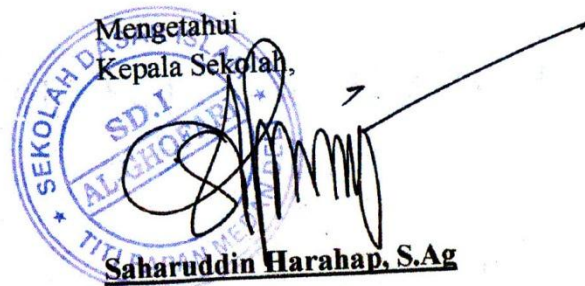 Mengetahui
Kepala Sekolah,
SEKOLAH DASAR ISLAM
SD.I
AL-GHOFARI
TITI PAPAN MEDAN
Saharuddin Harahap, S.Ag